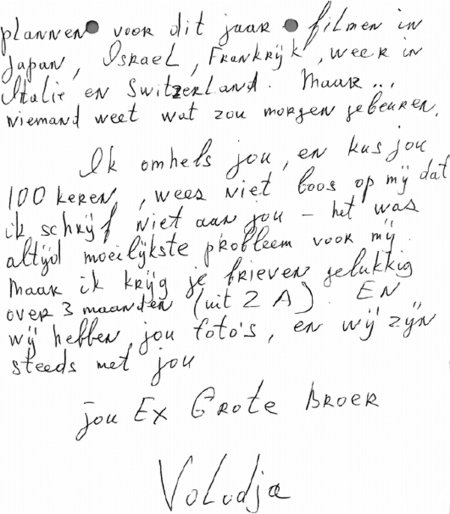 plannen voor dit jaar filmen in
Japan, Israel, Frankrijk, weer in
Italie en Switzerland. Maar...
niemand weet wat zou morgen gebeuren.
Ik omhels jou, en kus jou
100 keren, wees niet boos op mij dat
ik schrijf niet aan jou – het was
altijd moeilijkste probleem voor mij.
Maar ik krijg je brieven gelukkig
over 3 maanden (uit Z A). EN
wij hebben jou foto's, en wij zijn
steeds met jou
jou Ex Grote Broer
Volodja